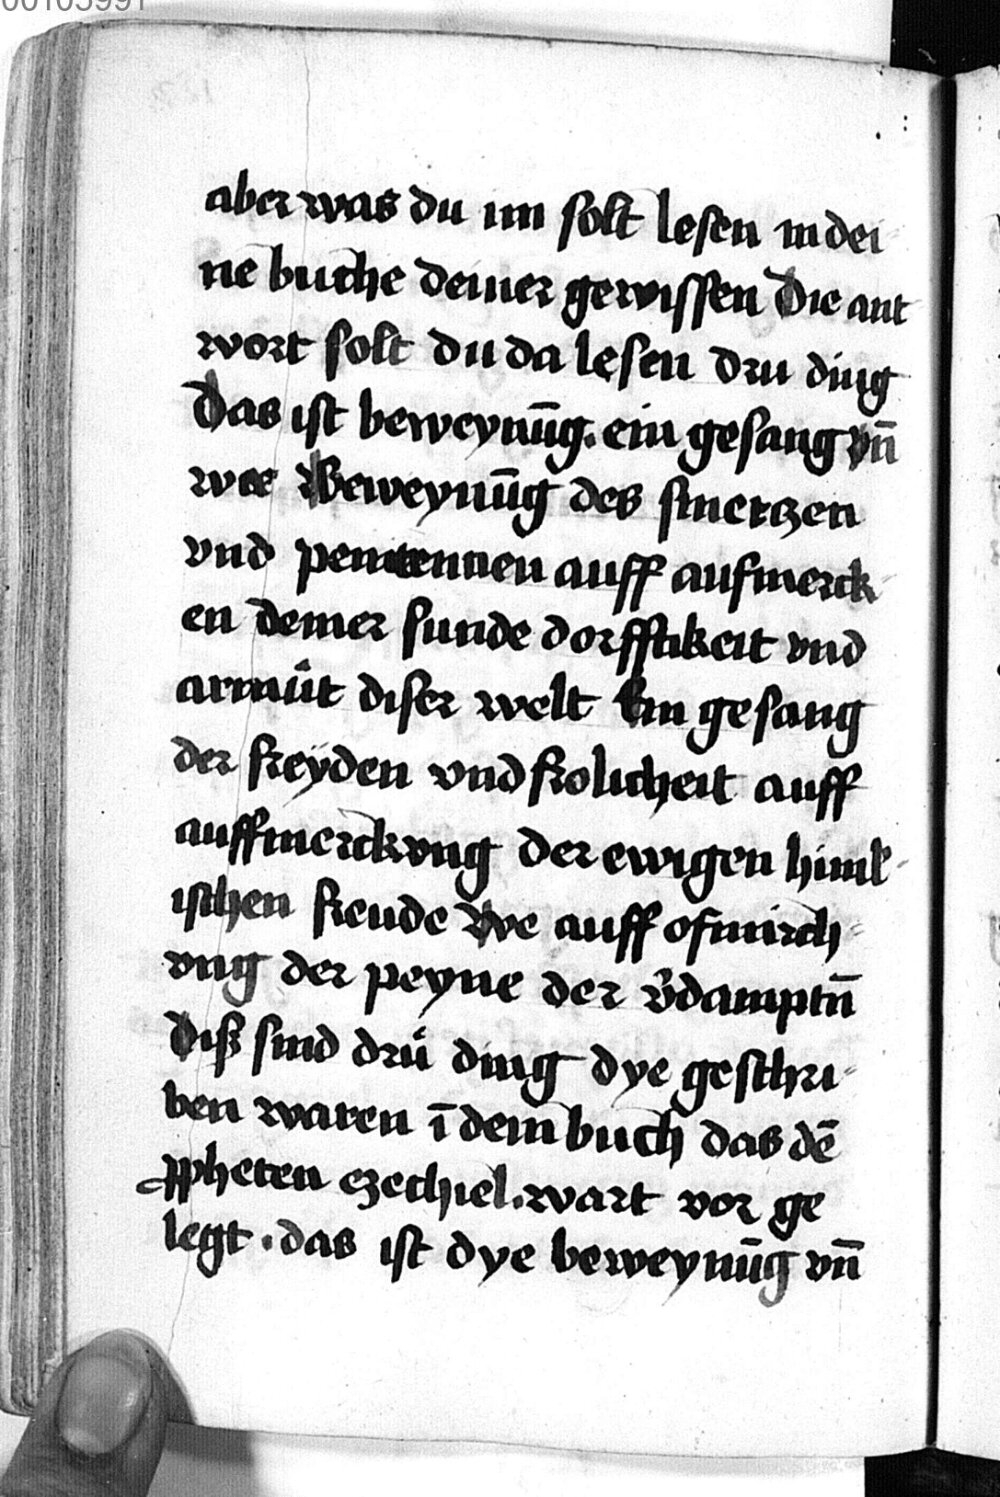 00105991
aber was du im solt lesen in dei
ne buche deiner gewissen Die ant
wort solt du da lesen dru ding
Das ist beweynūg. ein gesang vn̄
wee Beweynūg des smertzen
vnd penitentien auff aufmerck
en deiner sunde dorfftikeit vnd
armůt diser welt Ein gesang
der freyden vnd frolicheit auff
auffmerckvng der ewigen himl
ischen freude We auff ofmirch
vng der peyne der v̄damptn̄
Diß sind drů ding dye geschri
ben waren ī dem buch das dē
ꝓpheten ezechiel. wart vor ge
legt . das ist dye beweynūg vn̄